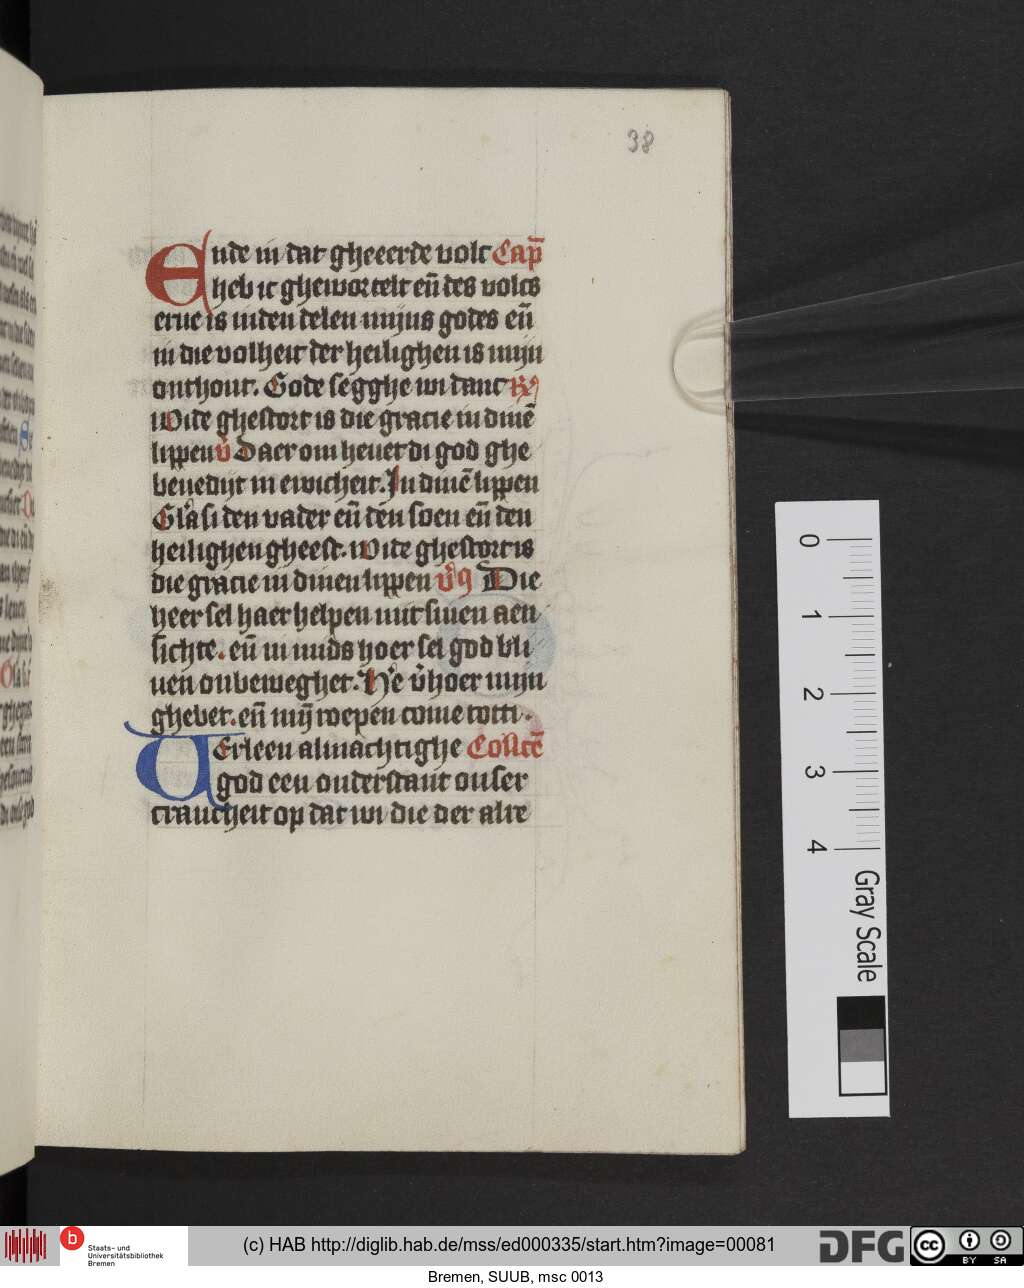 38
Ende in dat gheeerde volc Cap̄
heb ic ghewortelt en̄ des volcs
erue is inden delen mijns godes en̄
in die volheit der heilighen is mijn
onthout. Gode segghe wi danc R⁊
Wtde ghestort is die gracie in dinē
lippen v̾ Daer om heuet di god ghe
benedijt in ewicheit. In dinē lippen
Gl'a si den vader en̄ den soen en̄ den
heilighen gheest. wtde ghestort is
die gracie in dinen lippen v̾s Die
heer sel haer helpen mit sinen aen
sichte. en̄ in mids hoer sel god bli
uen onbeweghet. He' v̾hoer mijn
ghebet. en̄ mij roepen come totti.
VErleen almachtighe Collcē
god een onderstant onser
crancheit op dat wi die der alre
0
1
2
3
4
Gray Scale
b
Staats- und
Universitätsbibliothek
Bremen
(c) HAB http://diglib.hab.de/mss/ed000335/start.htm?image=00081
DFG
cc
BY SA
Bremen, SUUB, msc 0013